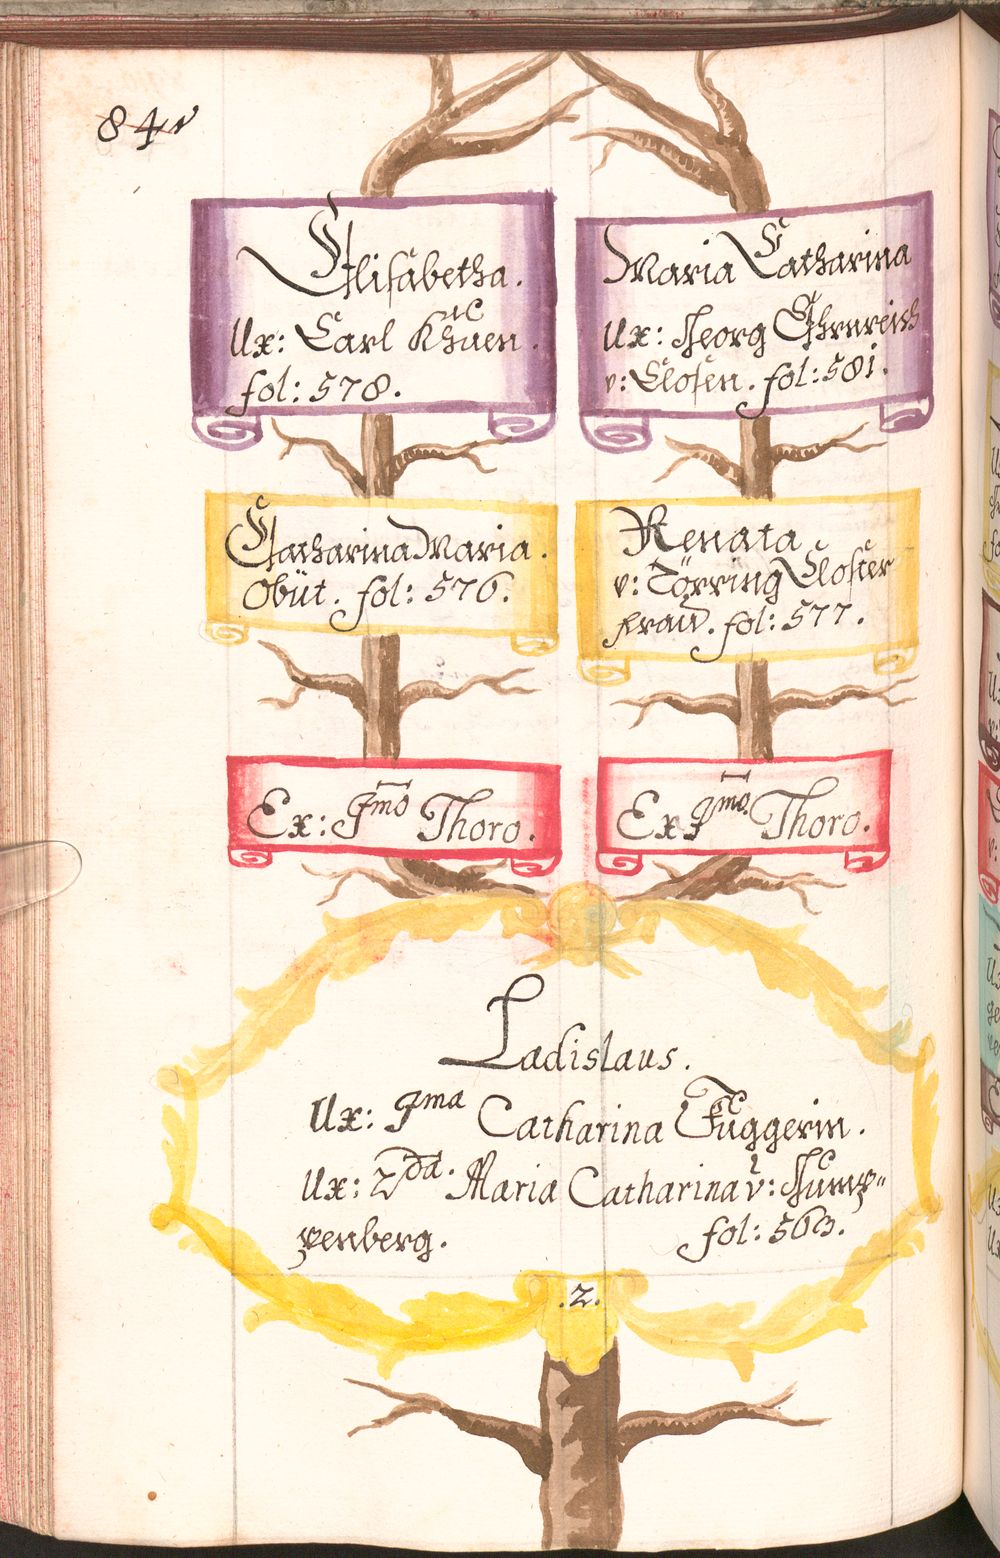 841
Elisabetha.
Ux: Carl Khuen.
fol: 578.
Maria Catharina
Ux: Georg Ehrnreich
v: Closen. fol: 581.
Catharina Maria.
Obiit. fol: 576.
Renata
v: Törring Closter
fraw. fol: 577.
Ex: Imo Thoro.
Ex Imo. Thoro.
Ladislaus.
Ux: Ima Catharina Fuggerin.
Ux: 2da. Maria Catharina v: Gump-
penberg. fol: 563.
.2.